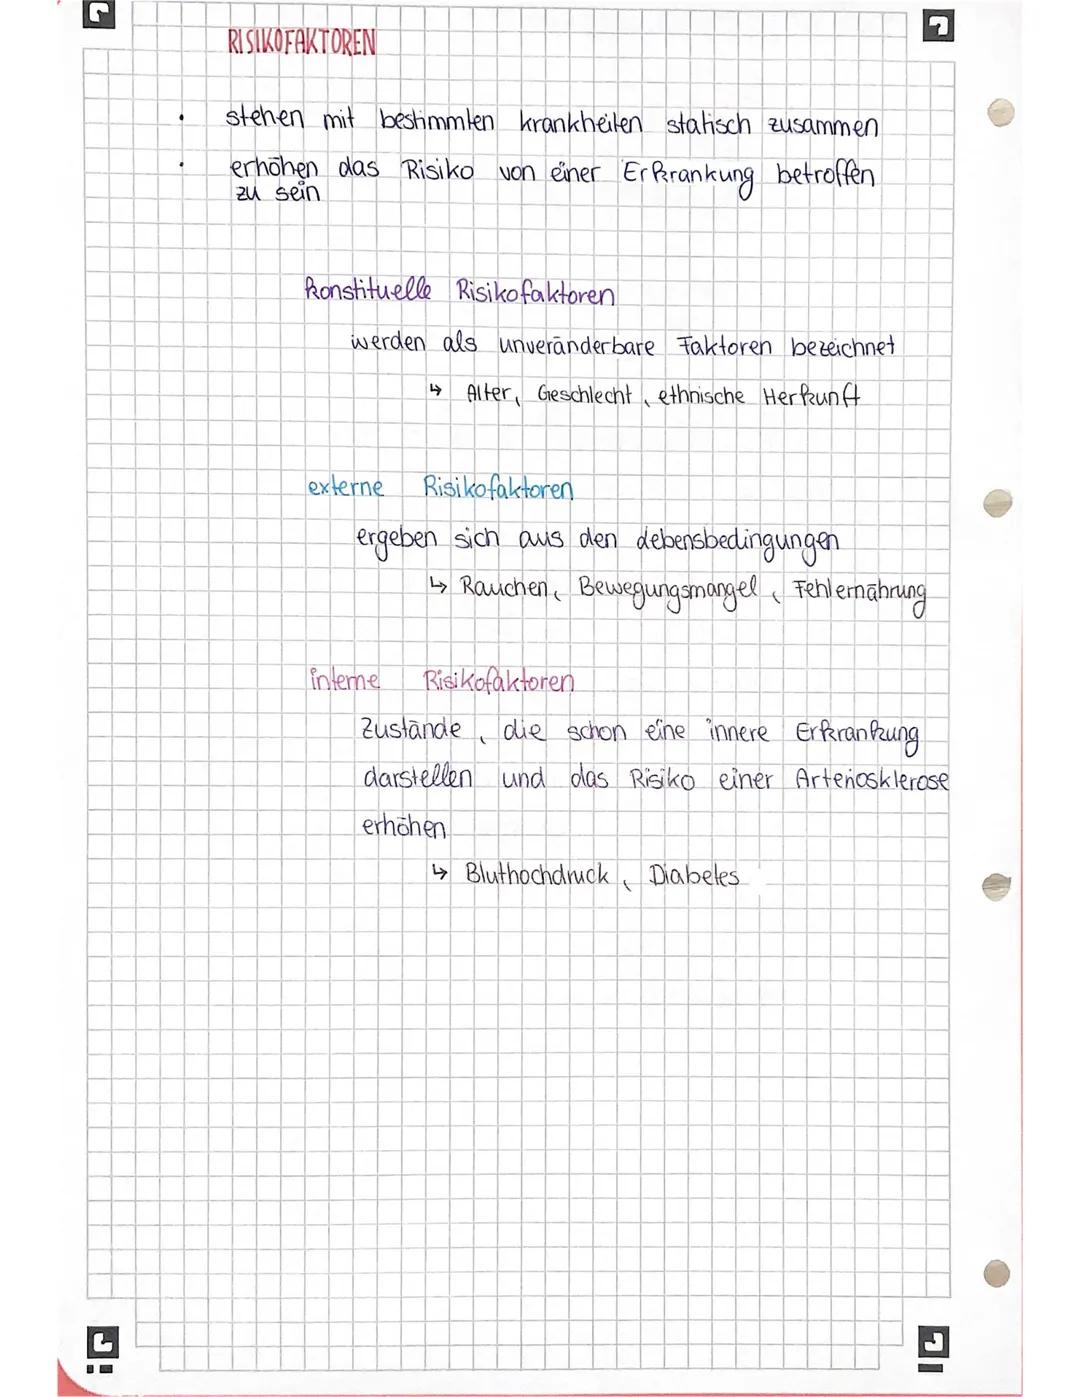 RISIKOFAKTOREN
• stehen mit bestimmten krankheiten statisch zusammen
• erhöhen das Risiko von einer Erkrankung betroffen
zu sein
konstituelle Risikofaktoren
werden als unveränderbare Faktoren bezeichnet
↳ Alter, Geschlecht, ethnische Herkunft
externe Risikofaktoren
ergeben sich aus den Lebensbedingungen
↳ Rauchen, Bewegungsmangel, Fehlernährung
interne Risikofaktoren
Zustände, die schon eine innere Erkrankung
darstellen und das Risiko einer Arteriosklerose
erhöhen
↳ Bluthochdruck, Diabetes